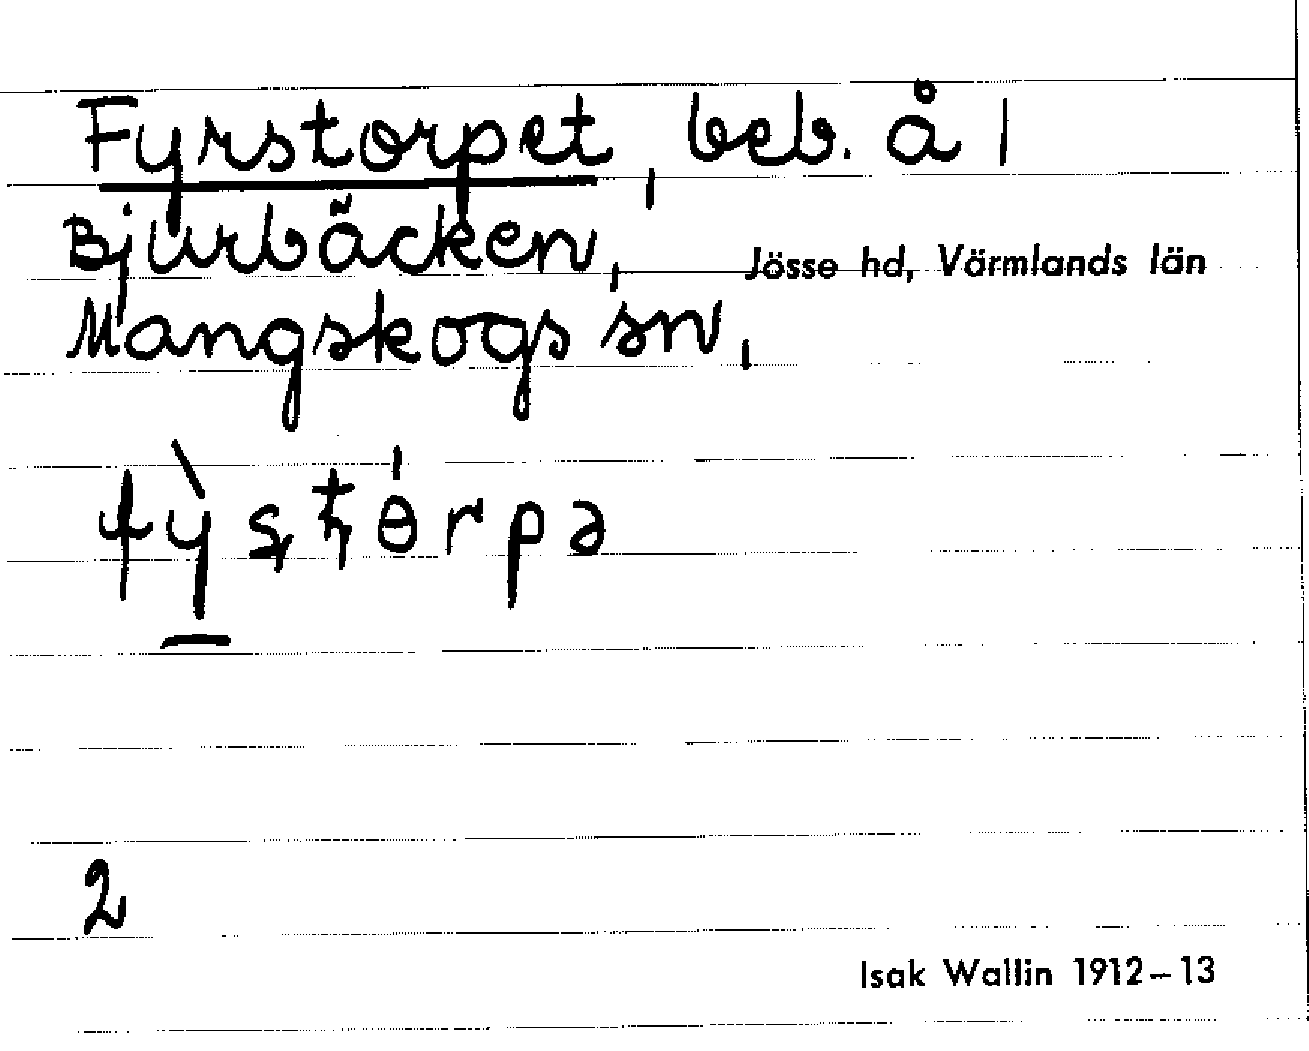 Fyrstorpet, beb. å 1
Bjurbäcken,
Jösse hd, Värmlands län
Mangskogs sn,
2
Isak Wallin 1912–13